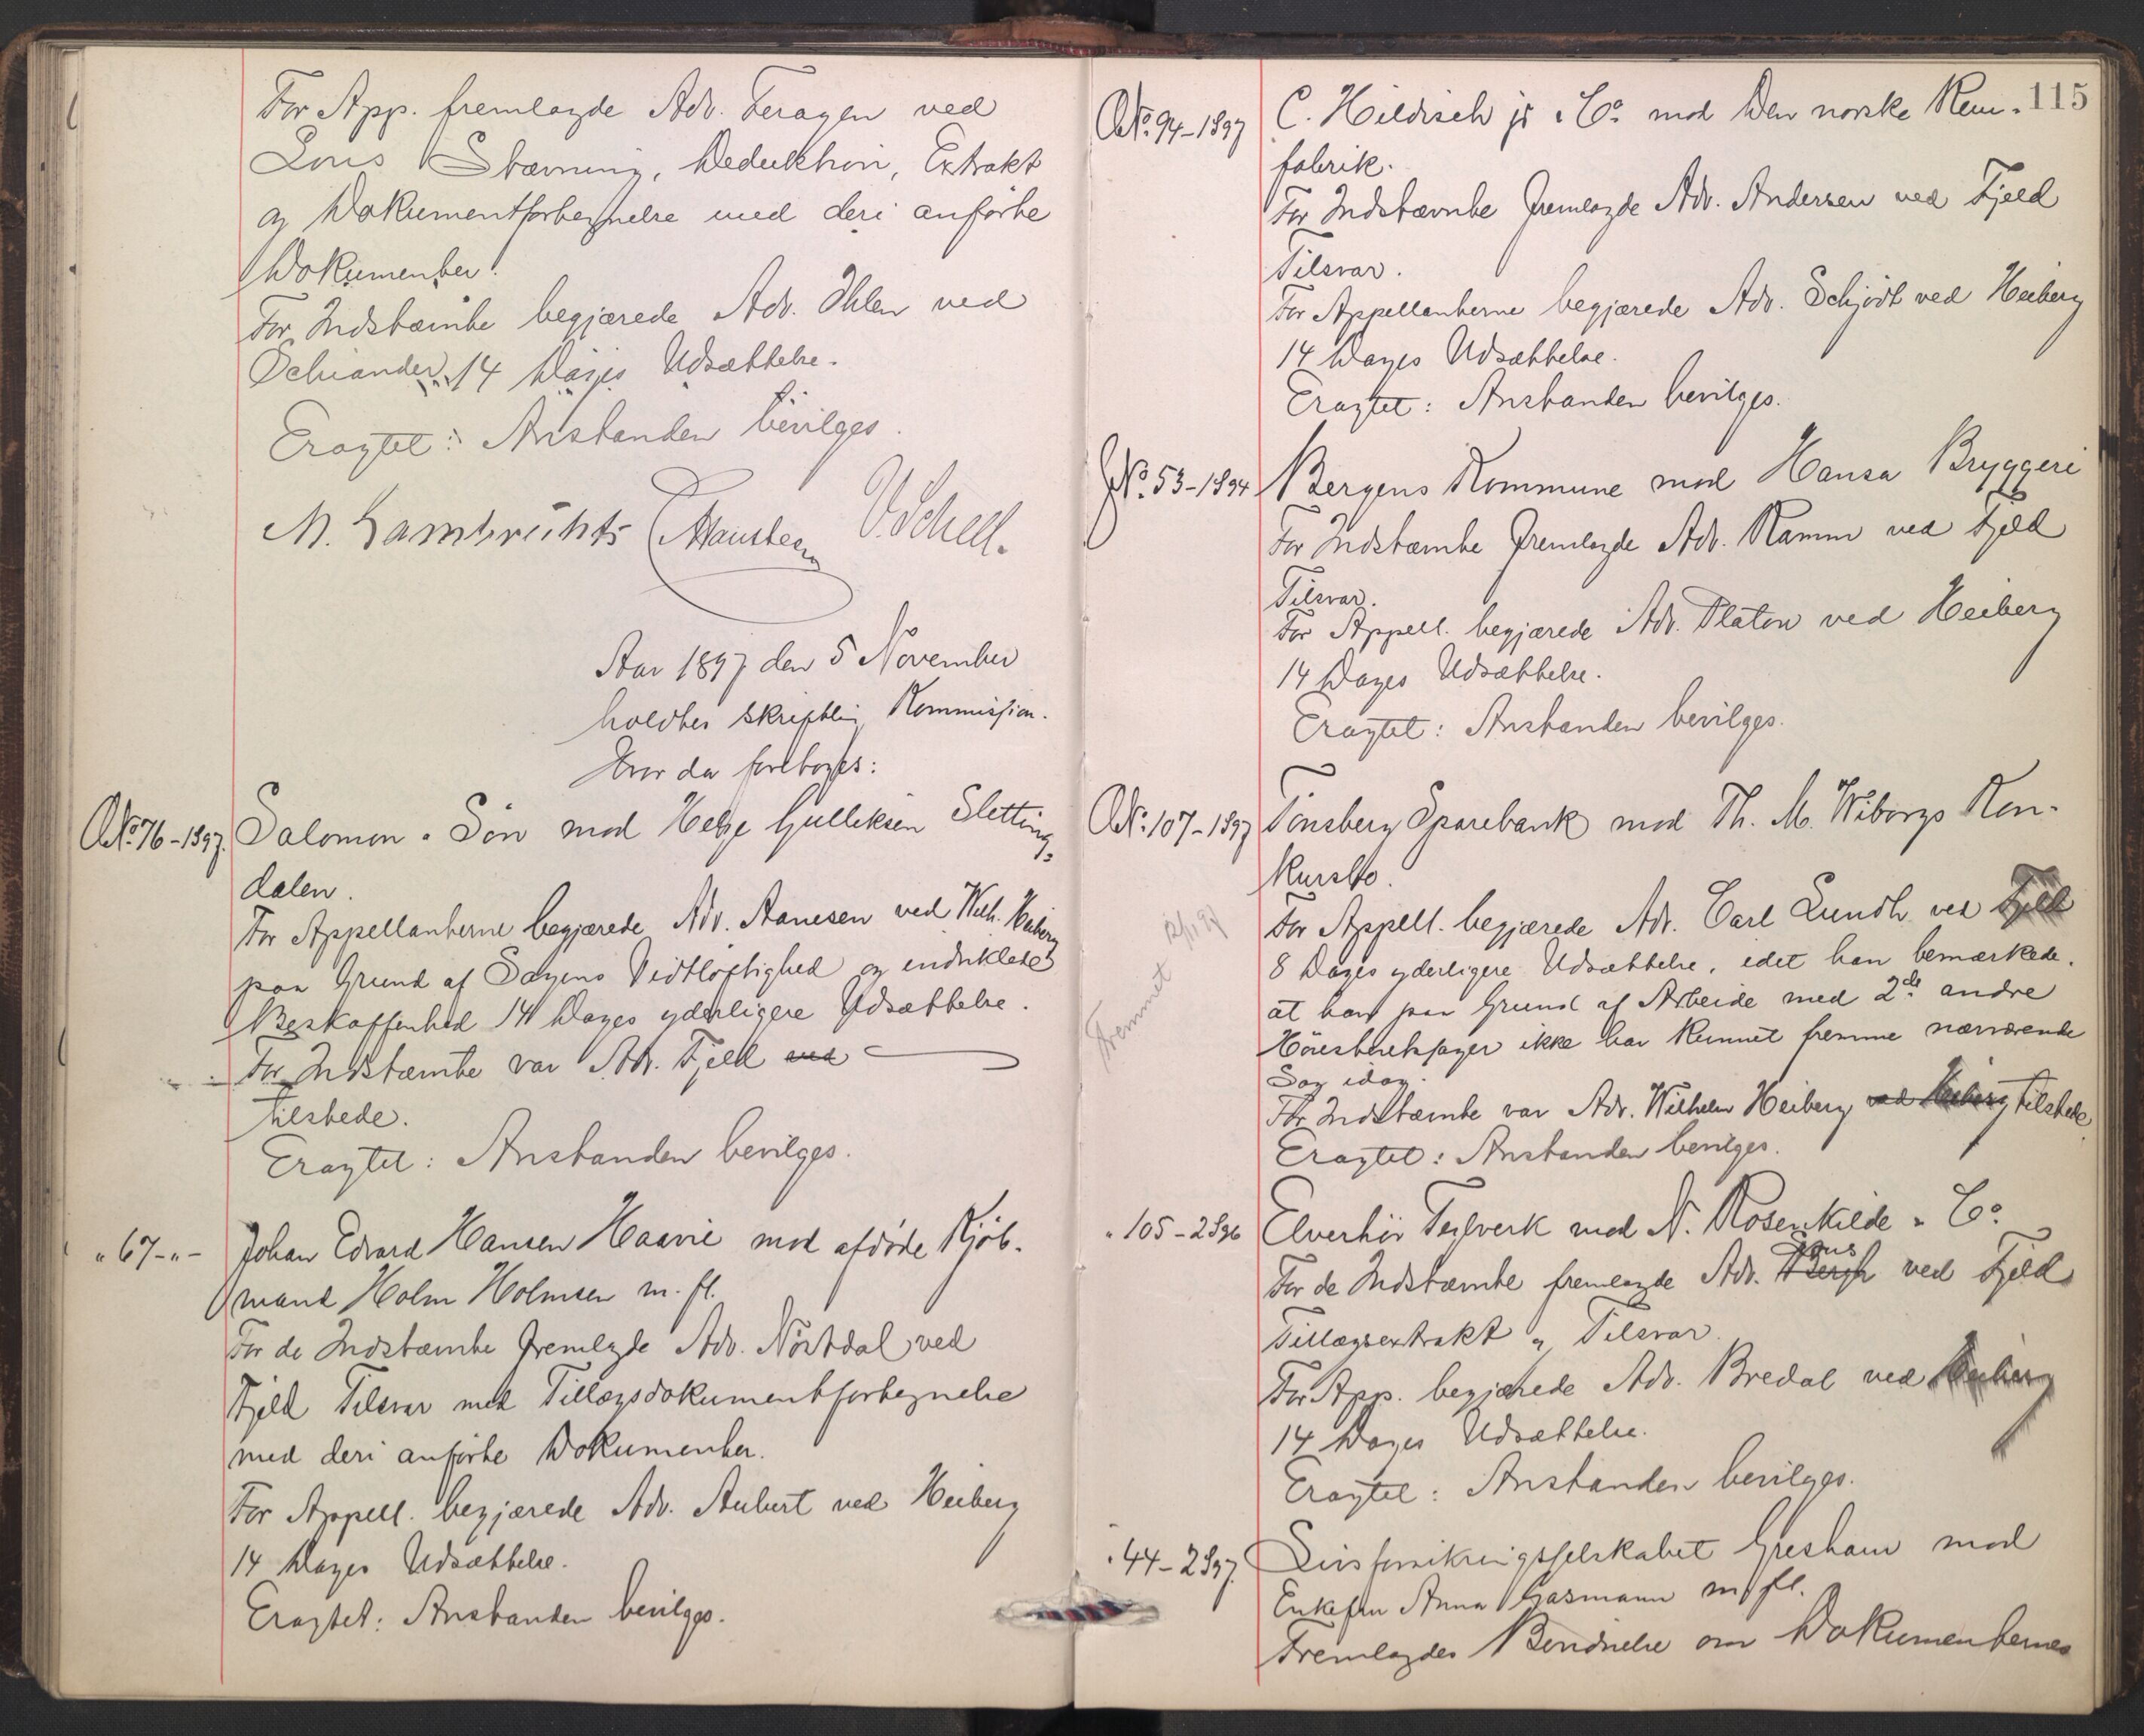 For App. fremlagde Adv. Feragen ved
Lous Stævning, Deduktion, Extrakt
og Dokumentfortegnelse med deri anførte
Dokumenter.
For Indstævnte begjærede Adv. Ihlen ved
Schiander 14 Dages Udsættelse.
Eragtet: Anstanden bevilges.
M. Lambrechts Hansteen V. Scheel.
Aar 1897 den 5 November
holdtes skriftlig Kommission.
Hvor da foretoges:
No. 76-1897. Salomon & Søn mod Helge Gulleksen Sletting-
dalen.
For Appellanterne begjærede Adv. Aanesen ved Wilh. Heiberg
paa Grund af Sagens Vidtløftighed og indviklede
Beskaffenhed 14 Dages yderligere Udsættelse.
For Indstævnte var Adv. Fjeld ved
tilstede.
Eragtet: Anstanden bevilges.
" 67-"- Johan Edvard Hansen Haavie mod afdøde Kjøb-
mand Holm Holmsen m. fl.
For de Indstævnte fremlagde Adv. Nørtdal ved
Fjeld Tilsvar med Tillægsdokumentfortegnelse
med deri anførte Dokumenter.
For Appell. begjærede Adv. Aubert ved Heiberg
14 Dages Udsættelse.
Eragtet: Anstanden bevilges.
115
No. 94-1897 C. Hildisch jr & Co. mod Den norske Rem-
fabrik.
For Indstævnte fremlagde Adv. Andersen ved Fjeld
Tilsvar.
For Appellanterne begjærede Adv. Schjødt ved Heiberg
14 Dages Udsættelse.
Eragtet: Anstanden bevilges.
No. 53-1894 Bergens Kommune mod Hansa Bryggeri
For Indstævnte fremlagde Adv. Ramm ved Fjeld
Tilsvar.
For Appell. begjærede Adv. Platou ved Heiberg
14 Dages Udsættelse.
Eragtet: Anstanden bevilges.
No. 107-1897 Tønsberg Sparebank mod Th. M. Wiborgs Kon-
kursbo.
For Appell. begjærede Adv. Carl Lundh ved Fjeld
8 Dages yderligere Udsættelse, idet han bemærkede,
at han paa Grund af Arbeide med 2de andre
Høiesteretssager ikke har kunnet fremme nærværende
Sag idag.
Fremmet 12/11 97
For Indstævnte var Adv. Wilhelm Heiberg ved Heiberg tilstede
Eragtet: Anstanden bevilges.
" 105-2 S96 Elverhøi Teglverk mod N. Rosenkilde & Co.
For de Indstævnte fremlagde Adv. Bergh Lous ved Fjeld
Tillægsextrakt og Tilsvar.
For App. begjærede Adv. Bredal ved Heiberg
14 Dages Udsættelse.
Eragtet: Anstanden bevilges.
" 44-2 S97. Livsforsikringsselskabet Gresham mod
Enkefru Anna Gasmann m fl.
Fremlagdes Bevidnelse om Dokumenternes